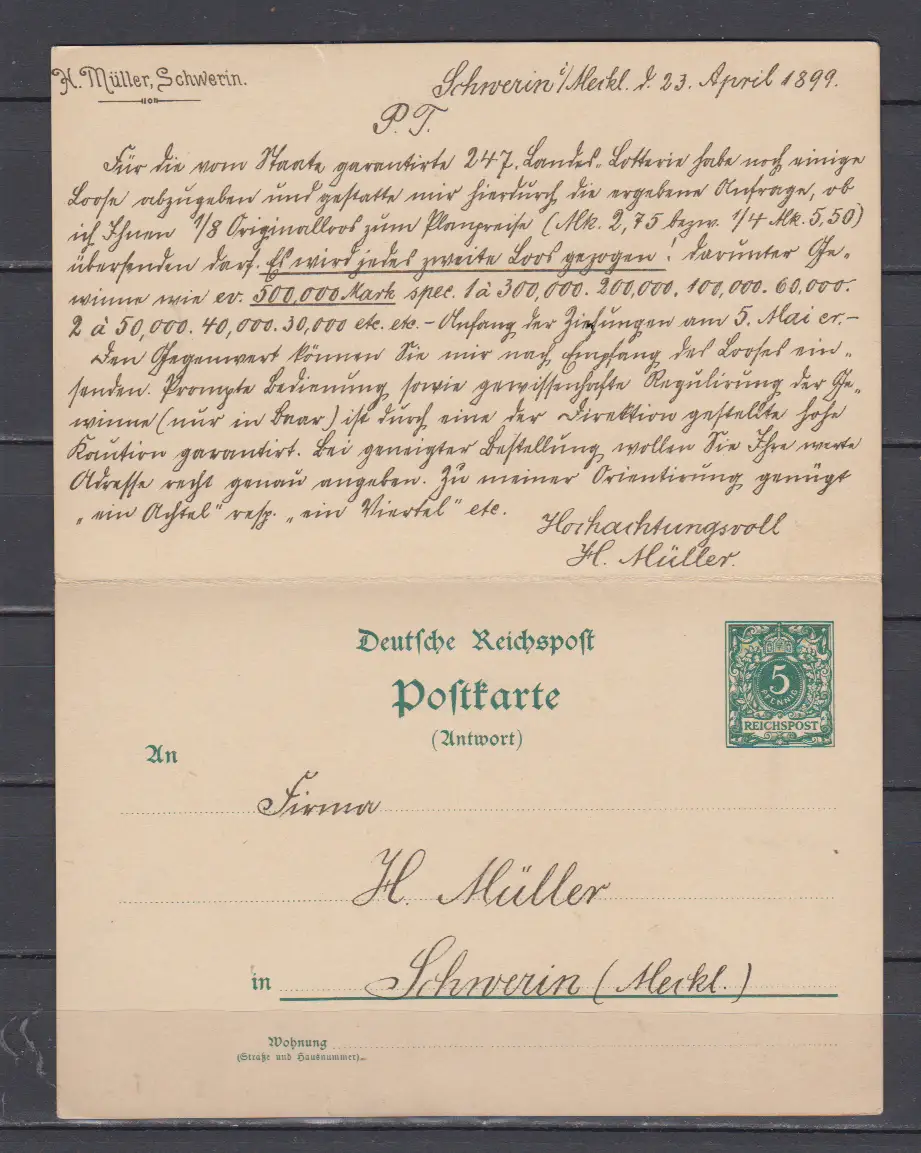 H. Müller, Schwerin.
Schwerin i/Meckl. d. 23. April 1899.
P. T.
Für die vom Staate garantirte 247. Landes-Lotterie habe noch einige
Loose abzugeben und gestatte mir hierdurch die ergebene Anfrage, ob
ich Ihnen 1/8 Originalloos zum Planpreise (Mk. 2,75 bezw. 1/4 Mk. 5,50)
übersenden darf. Es wird jedes zweite Loos gezogen! darunter Ge-
winne wie ev. 500,000 Mark spec. 1 à 300,000. 200,000. 100,000. 60,000.
2 à 50,000. 40,000. 30,000 etc. etc. – Anfang der Ziehungen am 5. Mai cr. –
Den Gegenwert können Sie mir nach Empfang des Looses ein-
senden. Prompte Bedienung, sowie gewissenhafte Regulirung der Ge-
winne (nur in Baar) ist durch eine der Direktion gestellte hohe
Kaution garantirt. Bei geneigter Bestellung wollen Sie Ihre werte
Adresse recht genau angeben. Zu meiner Orientirung genügt
„ein Achtel" resp. „ein Viertel" etc.
Hochachtungsvoll
H. Müller.
Deutsche Reichspost
Postkarte
(Antwort)
5
PFENNIG
REICHSPOST
An
Firma
H. Müller
in Schwerin (Meckl.)
Wohnung
(Straße und Hausnummer)